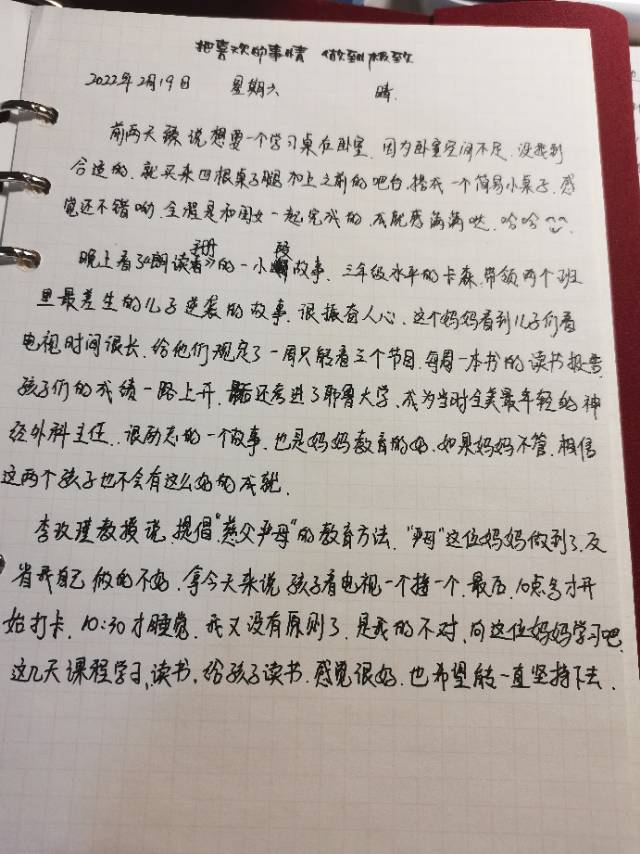 把喜欢的事情 做到极致
2022年2月19日 星期六 晴.
前两天臻说想要一个学习桌在卧室.因为卧室空间不足.没找到
合适的.就买来四根桌子腿加上之前的吧台.搭成一个简易小桌子.感
觉还不错呦.全程是和闺女一起完成的.成就感满满哒.哈哈
晚上看了《朗读手册》的一小段故事.三年级水平的卡森.带领两个班
里最差生的儿子逆袭的故事.很振奋人心.这个妈妈看到儿子们看
电视时间很长.给他们规定了一周只能看三个节目.每周一本书的读书报告.
孩子们的成绩一路上升.还考进了耶鲁大学.成为当时全美最年轻的神
经外科主任.很励志的一个故事.也是妈妈教育的好.如果妈妈不管.相信
这两个孩子也不会有这么好的成就.
李玫瑾教授说.提倡"慈父严母"的教育方法."严母"这位妈妈做到了.反
省我自己做的不好.拿今天来说.孩子看电视一个接一个.最后.10点多才开
始打卡.10:30才睡觉.我又没有原则了.是我的不对.向这位妈妈学习吧.
这几天课程学习、读书.给孩子读书.感觉很好.也希望能一直坚持下去.